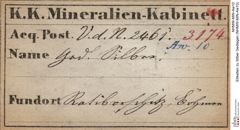 K. K. Mineralien-Kabinett.
Acq. Post. V. d. N. 2461. 3174
Av. 10
Name Ged. Silber.
Fundort Ratiborschitz, Böhmen